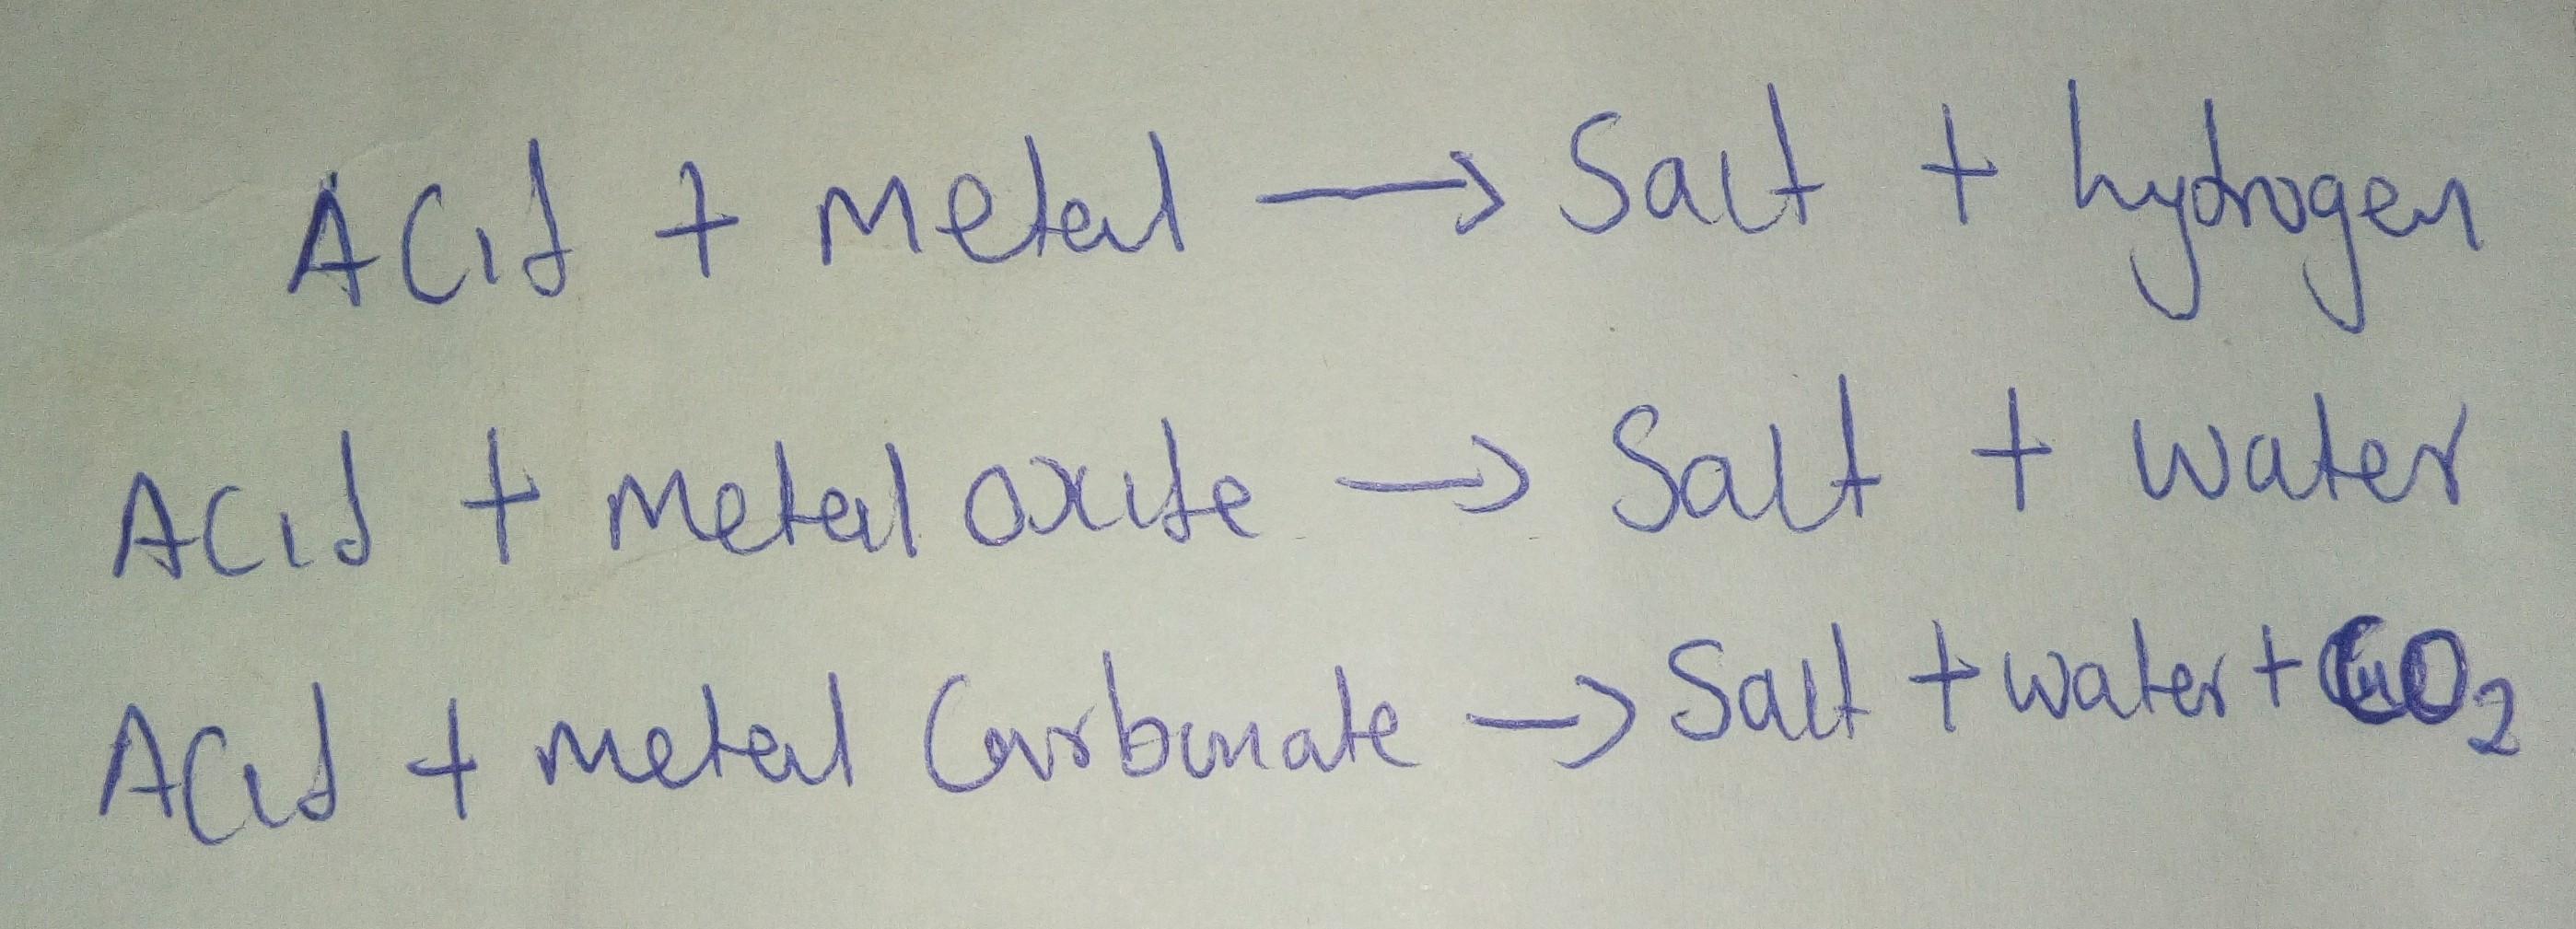 Acid + Metal → Salt + hydrogen
Acid + Metal oxide → Salt + water
Acid + metal Carbonate → Salt + water + CO₂